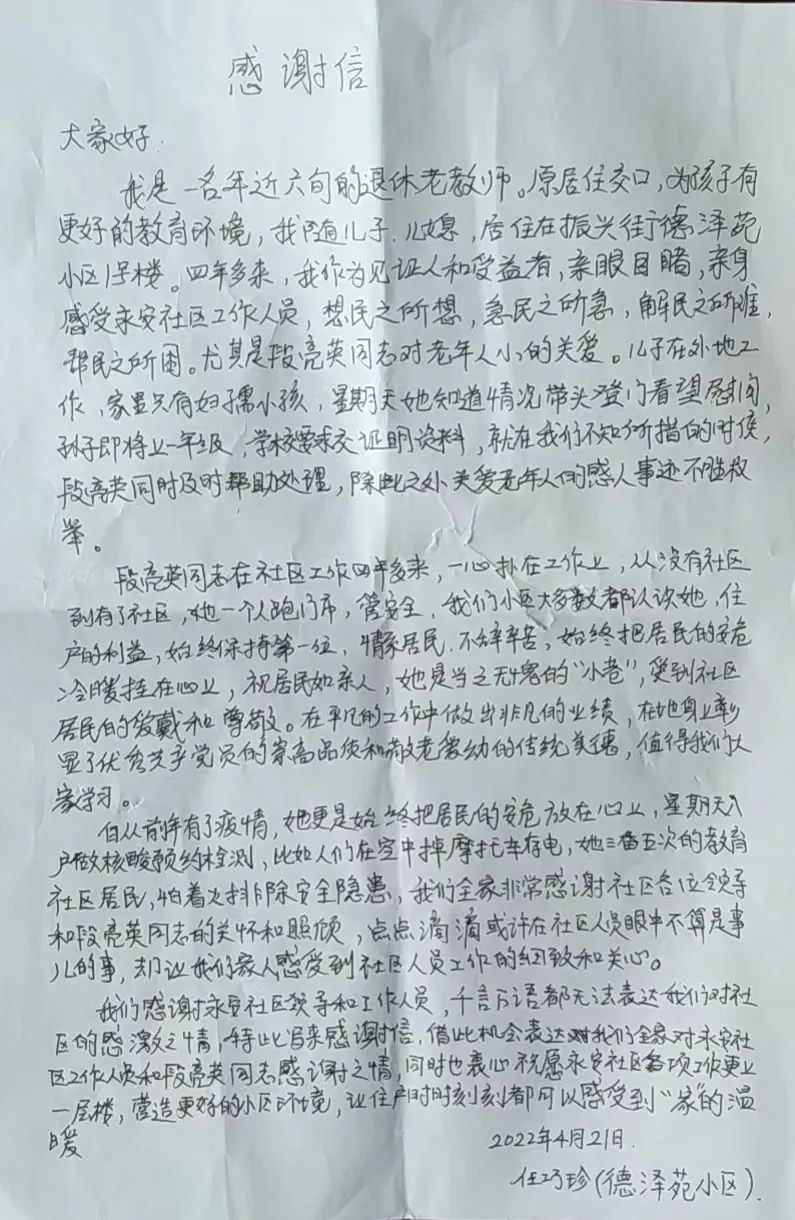 感谢信
大家好:
我是一名年近六旬的退休老教师。原居住交口,为孩子有
更好的教育环境,我随儿子、儿媳,居住在振兴街德泽苑
小区1号楼。四年多来,我作为见证人和受益者,亲眼目睹,亲身
感受永安社区工作人员,想民之所想,急民之所急,解民之所难,
帮民之所困。尤其是段亮英同志对老年人小的关爱。儿子在外地工
作,家里只有妇孺小孩,星期天她知道情况带头登门看望慰问,
孙子即将上一年级,学校要求交证明资料,就在我们不知所措的时侯,
段亮英同时及时帮助处理,除此之外关爱老年人们的感人事迹不胜枚
举。
段亮英同志在社区工作四年多来,一心扑在工作上,从没有社区
到有了社区,她一个人跑门市,管安全,我们小区大多数都认识她,住
户的利益,始终保持第一位,情系居民,不辞辛苦,始终把居民的安危
冷暖挂在心上,视居民如亲人,她是当之无愧的“小巷”,受到社区
居民的爱戴和尊敬。在平凡的工作中做出非凡的业绩,在她身上彰
显了优秀共产党员的崇高品质和敬老爱幼的传统美德,值得我们大
家学习。
自从前年有了疫情,她更是始终把居民的安危放在心上,星期天入
户做核酸预约检测,比如人们在空中掉摩托车存电,她三番五次的教育
社区居民,怕着火排除安全隐患,我们全家非常感谢社区各位领导
和段亮英同志的关怀和照顾,点点滴滴或许在社区人员眼中不算是事
儿的事,却让我们家人感受到社区人员工作的细致和关心。
我们感谢永安社区领导和工作人员,千言万语都无法表达我们对社
区的感激之情,特此写来感谢信,借此机会表达对我们全家对永安社
区工作人员和段亮英同志感谢之情,同时也衷心祝愿永安社区各项工作更上
一层楼,营造更好的小区环境,让住户时时刻刻都可以感受到“家”的温
暖
2022年4月21日.
任巧珍(德泽苑小区).